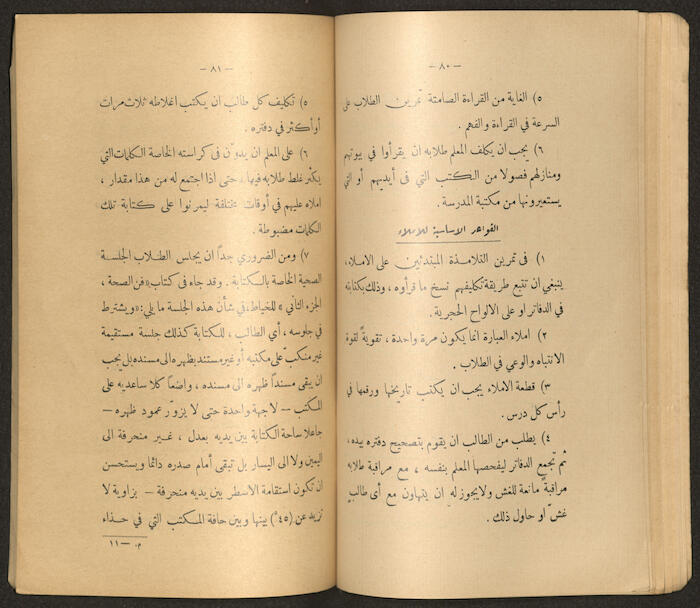 — ٨٠ —
٥) الغاية من القراءة الصامتة تمرين الطلاب على
السرعة في القراءة والفهم .
٦) يجب ان يكلف المعلم طلابه ان يقرأوا في بيوتهم
ومنازلهم فصولا من الكتب التي في أيديهم أو التي
يستعيرونها من مكتبة المدرسة .
القواعد الاساسية للاملاء
١) في تمرين التلامذة المبتدئين على الاملاء،
ينبغي ان تتبع طريقة تكليفهم نسخ ما قرأوه ، وذلك بكتابته
في الدفاتر او على الالواح الحجرية .
٢) املاء العبارة انما يكون مرة واحدة ، تقويةً لقوة
الانتباه والوعي في الطلاب .
٣) قطعة الاملاء يجب ان يكتب تاريخها ورقمها في
رأس كل درس .
٤) يطلب من الطالب ان يقوم بتصحيح دفتره بيده ،
ثم تجمع الدفاتر ليفحصها المعلم بنفسه ، مع مراقبة طلابه
مراقبةً مانعة للغش ولا يجوز له ان يتهاون مع أي طالبٍ
غشّ او حاول ذلك .
— ٨١ —
٥) تكليف كل طالب ان يكتب اغلاطه ثلاث مرات
أو أكثر في دفتره .
٦) على المعلم ان يدوّن في كراسته الخاصة الكلمات التي
يكثر غلط طلابه فيها ، حتى اذا اجتمع له من هذا مقدار ،
املاه عليهم في أوقات مختلفة ليمرنوا على كتابة تلك
الكلمات مضبوطة .
٧) ومن الضروري جداً ان يجلس الطلاب الجلسة
الصحية الخاصة بالكتابة . وقد جاء في كتاب «فن الصحة ،
الجزء الثاني » للخياط، في شأن هذه الجلسة ما يلي: «ويشترط
في جلوسه ، أي الطالب ، للكتابة كذلك جلسة مستقيمة
غير منكبّ على مكتبه أو غير مستند بظهره الى مسنده بل يجب
ان يبقى مسنداً ظهره الى مسنده ، واضعاً كلا ساعديه على
المكتب — لا جهة واحدة حتى لا يزورّ عمود ظهره —
جاعلا ساحة الكتابة بين يديه بعدل ، غير منحرفة الى
اليمين ولا الى اليسار بل تبقى أمام صدره دائما ويستحسن
ان تكون استقامة الاسطر بين يديه منحرفة — بزاوية لا
تزيد عن (٤٥°) بينها وبين حافة المكتب التي في حذاء
م. — ١١